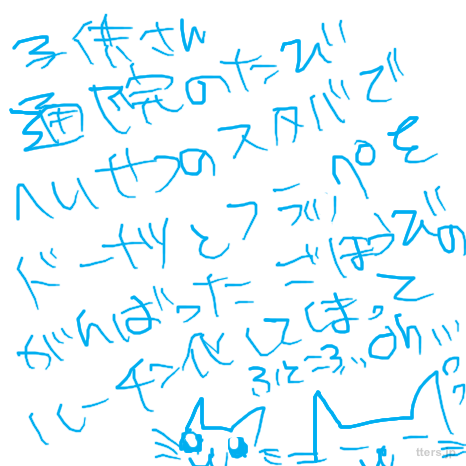 子供さん
通院のたび
へいせつのスタバで
ドーナツとフラッペを
がんばったごほうびの
ルーチン化してはって
ふところ… oh…
tters.jp